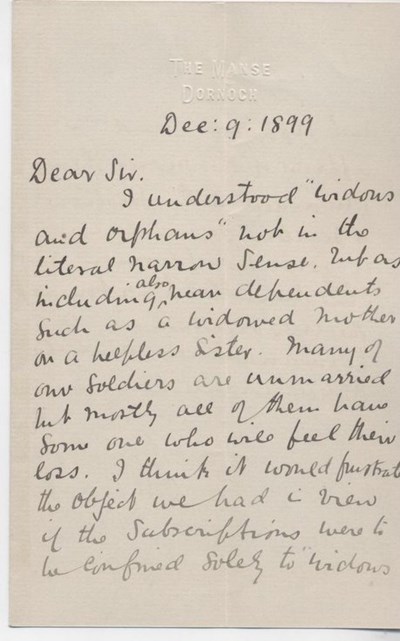 THE MANSE
DORNOCH
Dec: 9: 1899
Dear Sir.
I understood "widows
and orphans" not in the
literal narrow sense, but as
including, also near dependents
such as a widowed mother
or a helpless sister. Many of
our soldiers are unmarried
but mostly all of them have
some one who will feel their
loss. I think it would frustrate
the object we had in view
if the subscriptions were to
be confined solely to "widows